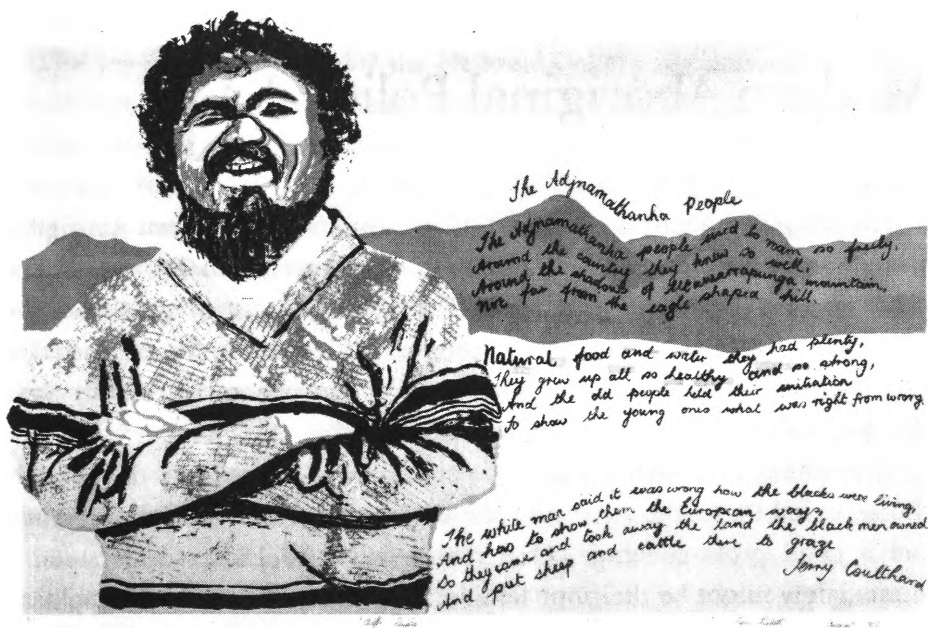 The Adjnamathanha People
The Adjnamathanha people used to roam so freely,
Around the country they knew so well,
Around the shadows of mountain,
Not far from the eagle shaped hill.
Natural food and water they had plenty,
They grew up all so healthy and so strong,
And the old people held their initiation
To show the young ones what was right from wrong
The white man said it was wrong how the blacks were living,
And has to show them the European ways,
So they came and took away the land the black men owned
And put sheep and cattle there to graze
Terry Coulthard